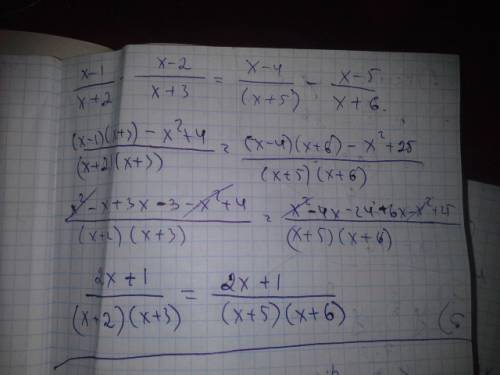 (x-1)/(x+2) - (x-2)/(x+3) = (x-4)/(x+5) - (x-5)/(x+6).
((x-1)(x+3) - x²+4)/((x+2)(x+3)) = ((x-4)(x+6) - x²+25)/((x+5)(x+6))
(x² - x + 3x - 3 - x² + 4)/((x+2)(x+3)) = (x² - 4x - 24 + 6x - x² + 25)/((x+5)(x+6))
(2x+1)/((x+2)(x+3)) = (2x+1)/((x+5)(x+6))